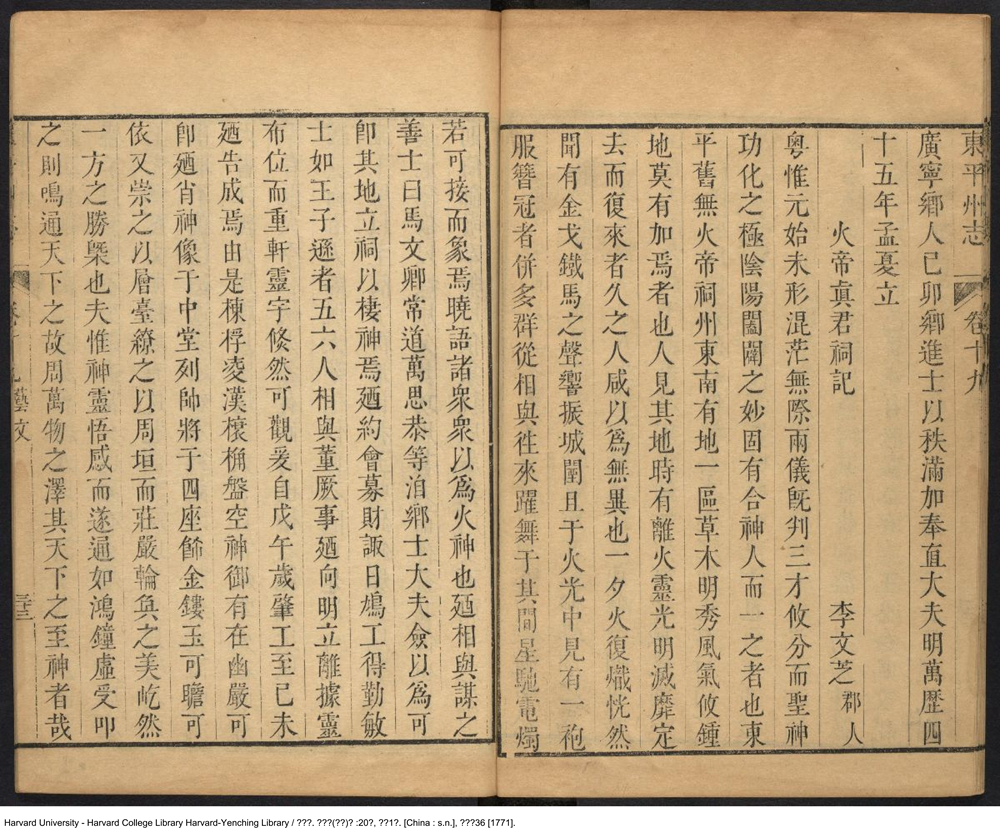 東平州志 卷十九
廣寧鄉人己卯鄉進士以秩滿加奉直大夫明萬歷四
十五年孟夏立
火帝眞君祠記 李文芝 郡人
粵惟元始未形混茫無際兩儀旣判三才攸分而聖神
功化之極陰陽闔闢之妙固有合神人而一之者也東
平舊無火帝祠州東南有地一區草木明秀風氣攸鍾
地莫有加焉者也人見其地時有離火靈光明滅靡定
去而復來者久之人咸以爲無異也一夕火復熾恍然
聞有金戈鐵馬之聲響振城闉且于火光中見有一袍
服簪冠者併多群從相與徃來躍舞于其間星馳電燭
若可接而象焉曉語諸衆衆以爲火神也廼相與謀之
善士曰馬文卿常道萬思恭等洎鄉士大夫僉以爲可
卽其地立祠以棲神焉廼約會募財諏日鳩工得勤敏
士如王子遜者五六人相與董厥事廼向明立離據靈
布位而重軒靈宇倐然可觀爰自戊午歲肇工至己未
廼告成焉由是棟桴凌漢榱桷盤空神御有在幽嚴可
卽廼肖神像于中堂列帥將于四座餙金鏤玉可瞻可
依又崇之以層臺繚之以周垣而莊嚴輪奐之美屹然
一方之勝槩也夫惟神靈悟感而遂通如鴻鐘虛受叩
之則鳴通天下之故周萬物之澤其天下之至神者哉
藝文 三十三
Harvard University - Harvard College Library Harvard-Yenching Library / ???. ???(??)? :20?, ??1?. [China : s.n.], ???36 [1771].